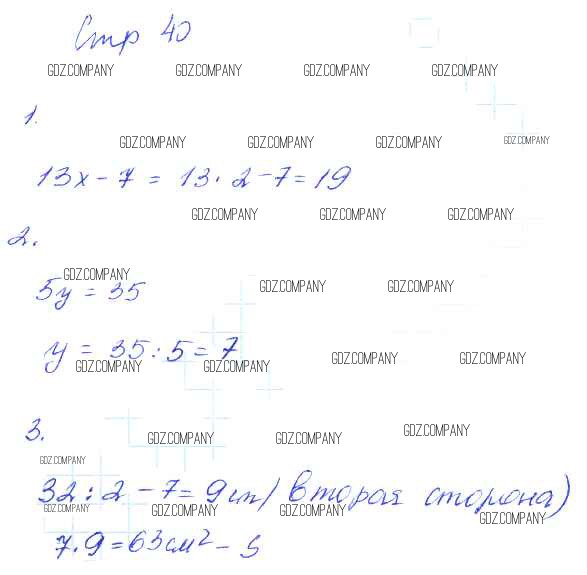 Стр 40
GDZ.COMPANY GDZ.COMPANY GDZ.COMPANY GDZ.COMPANY
1.
GDZ.COMPANY GDZ.COMPANY GDZ.COMPANY GDZ.COMPANY
13x - 7 = 13 · 2 - 7 = 19
GDZ.COMPANY GDZ.COMPANY GDZ.COMPANY
2.
GDZ.COMPANY GDZ.COMPANY GDZ.COMPANY
5y = 35
y = 35 : 5 = 7
GDZ.COMPANY GDZ.COMPANY GDZ.COMPANY GDZ.COMPANY
3.
GDZ.COMPANY GDZ.COMPANY GDZ.COMPANY
GDZ.COMPANY
32 : 2 - 7 = 9 см (вторая сторона)
GDZ.COMPANY GDZ.COMPANY GDZ.COMPANY GDZ.COMPANY
7 · 9 = 63 см² - S